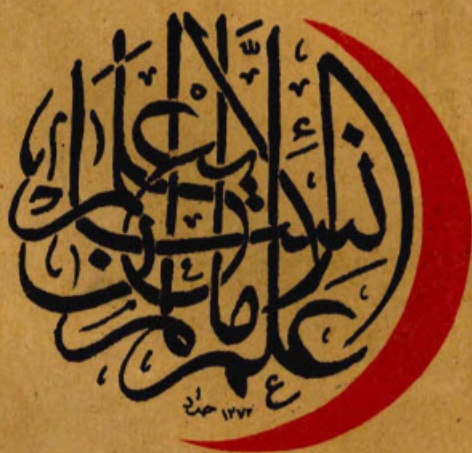 علم الإنسان ما لم يعلم
١٣٧٢